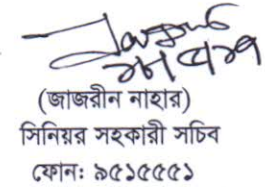 (জাজরীন নাহার)
সিনিয়র সহকারী সচিব
ফোন: ৯৫১৫৫৫১